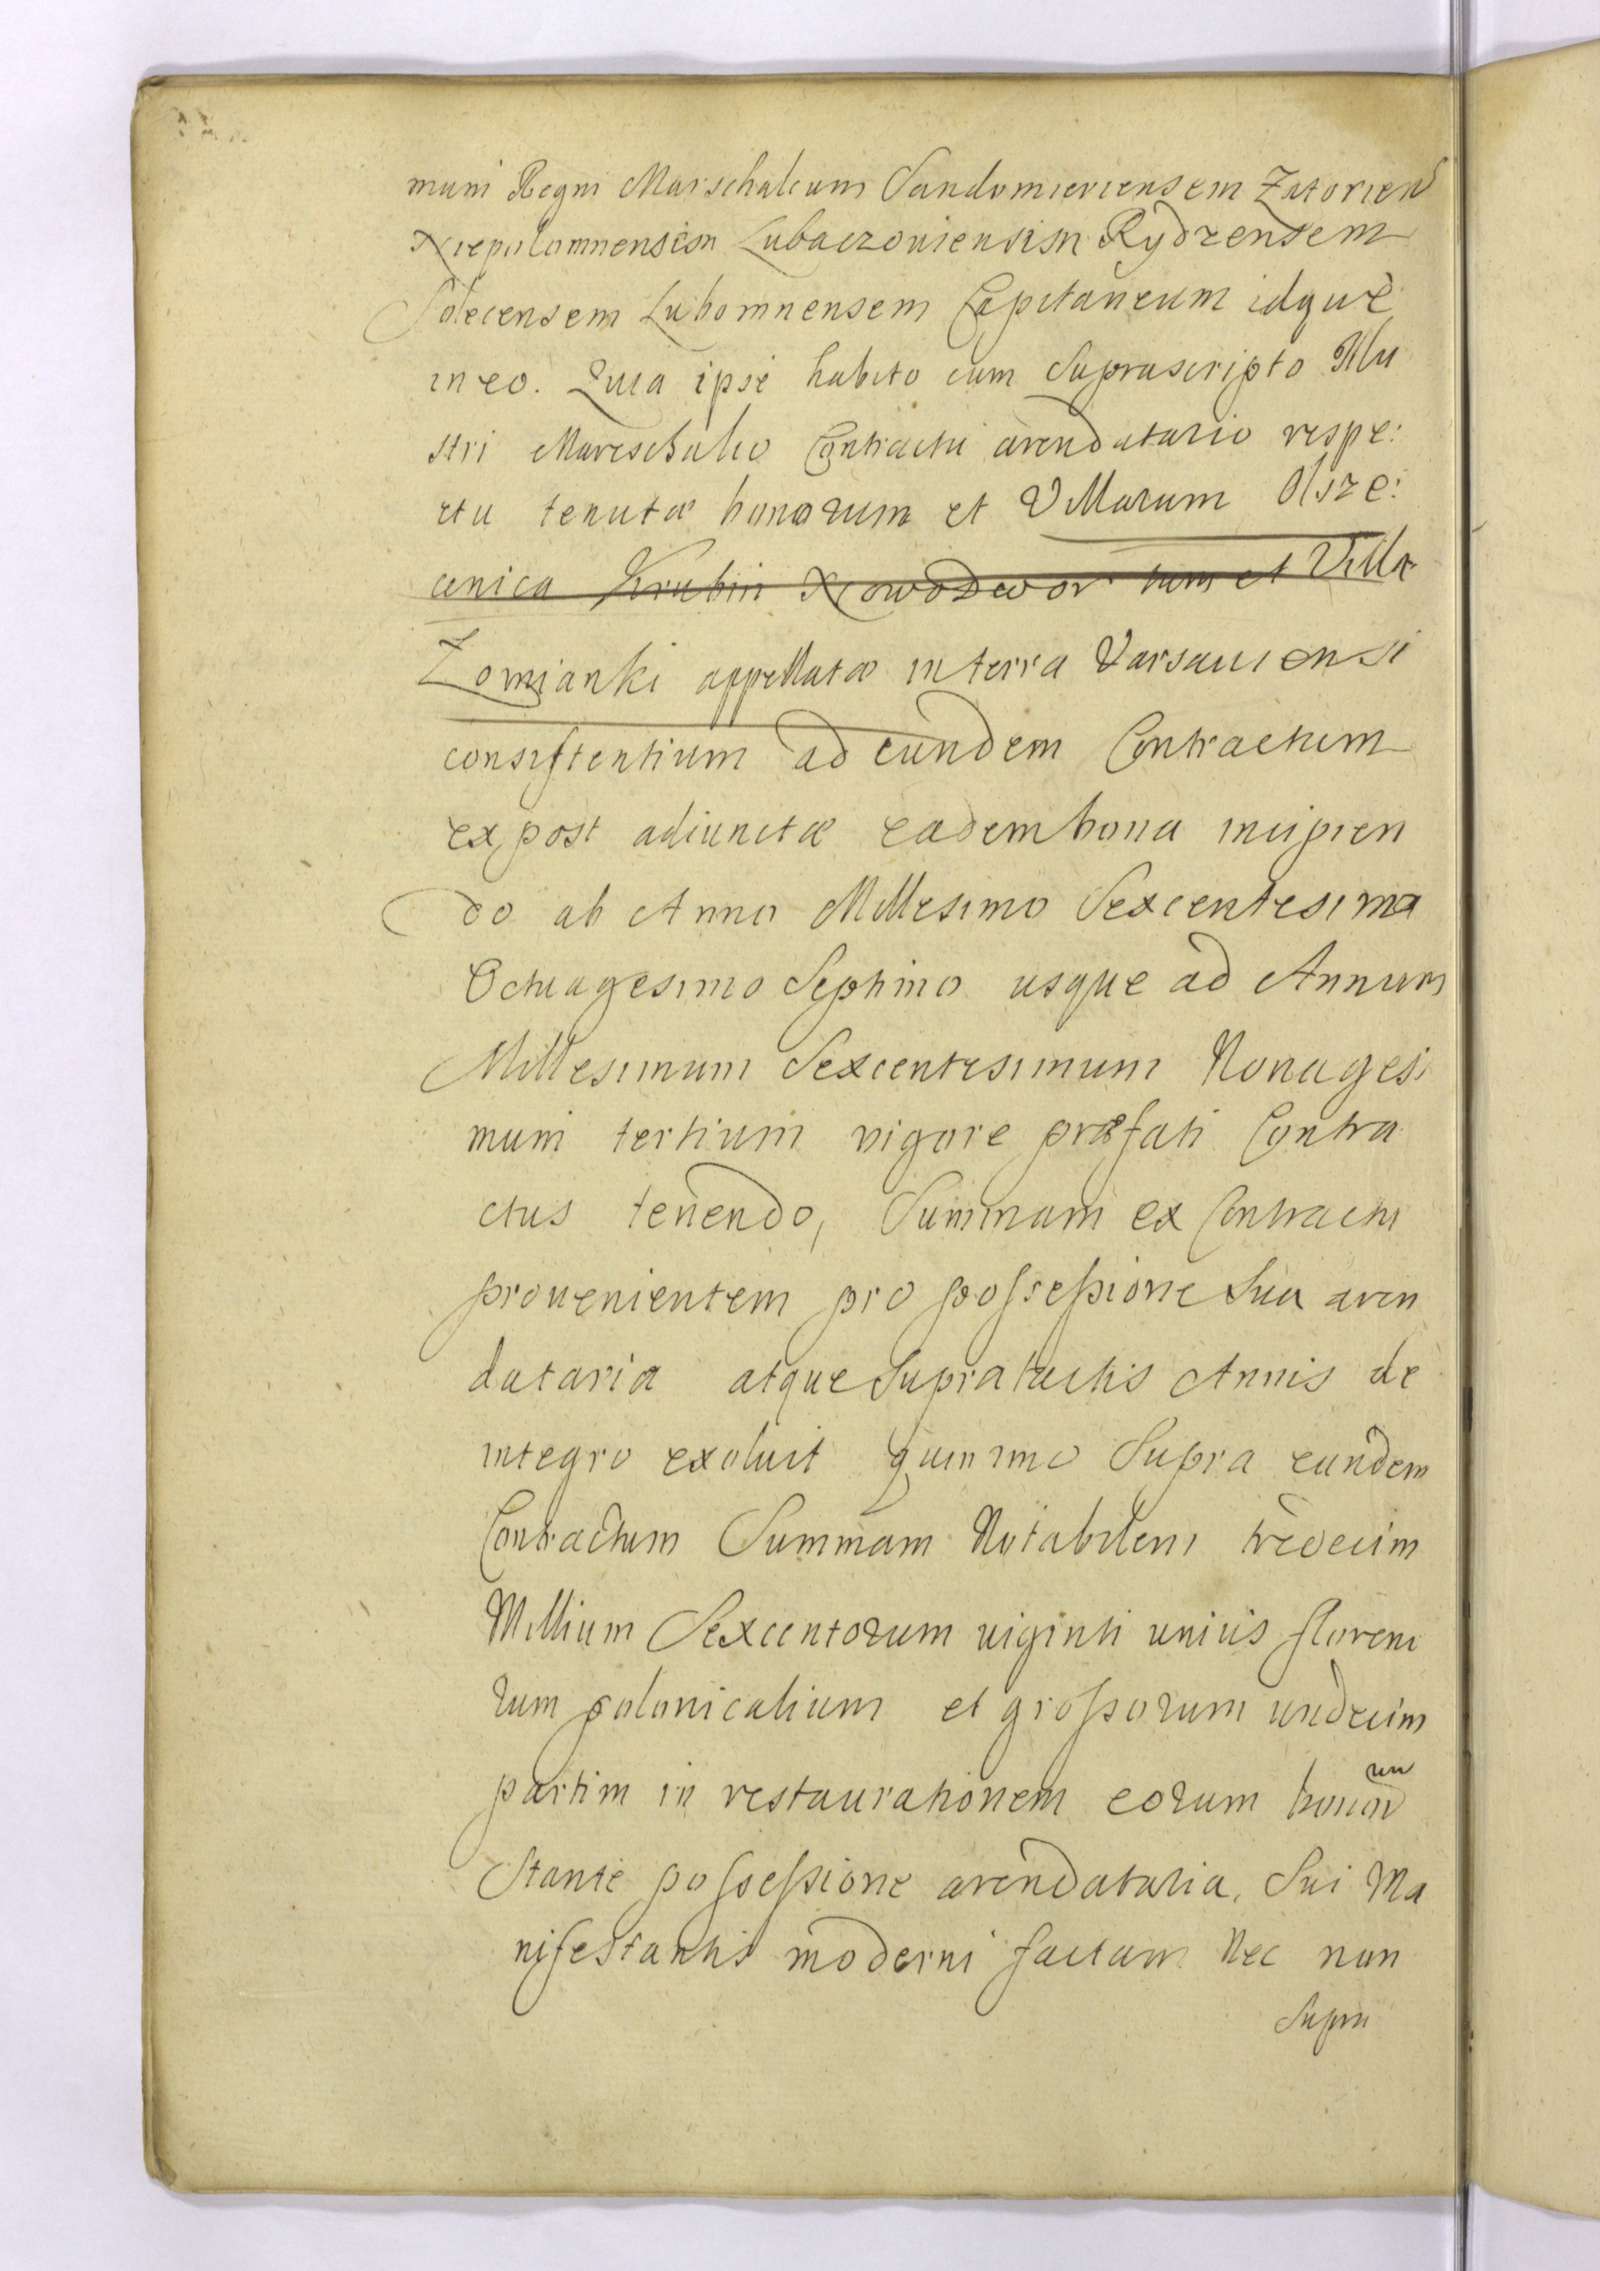 mum Regni Marschalcum Sandomieriensem Zatorien
Niepolomnensem Lubaczoviensem Rydzensem
Solecensem Lubomnensem Capitaneum idque
in eo. Quia ipse habito cum Suprascripto Illu
stri Mareschalco Contractu arendatario respe:
ctu tenutæ bonorum et Villarum Olsze:
wnica Krubin Nowodwor tum et Villæ
Łomianki appellatæ in terra Varsaviensi
consistentium ad eundem Contractum
ex post adiunctæ eadem bona incipien
do ab Anno Millesimo Sexcentesimo
Octuagesimo Septimo usque ad Annum
Millesimum Sexcentesimum Nonagesi
mum tertium vigore præfati Contra
ctus tenendo, Summam ex Contractu
provenientem pro possessione Sua aren
dataria atque Supratactis Annis de
integro exoluit quinimo Supra eundem
Contractum Summam Notabilem tredecim
Millium Sexcentorum viginti unius floreno
rum polonicalium et grossorum undecim
partim in restaurationem eorum bonorum
Stante possessione arendataria, Sui Ma
nifestantis moderni factam Nec non
Supra